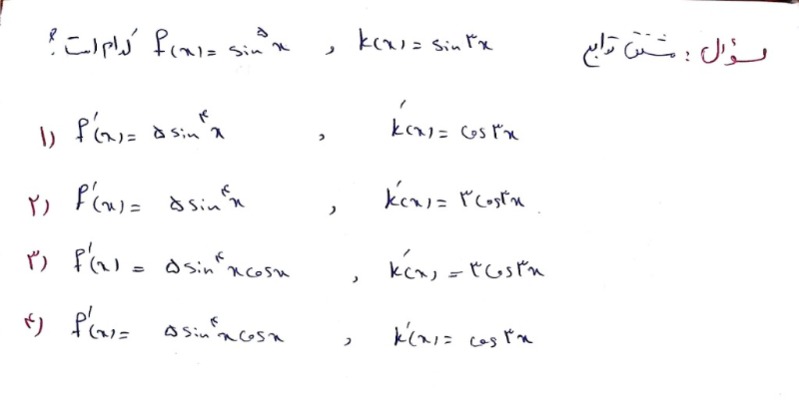 سؤال : مشتق توابع k(x) = sin ۳x , f(x) = sin^۵ x کدام است ؟
۱) f'(x) = ۵ sin^۴ x , k'(x) = cos ۳x
۲) f'(x) = ۵ sin^۴ x , k'(x) = ۳ cos ۳x
۳) f'(x) = ۵ sin^۴ x cos x , k'(x) = ۳ cos ۳x
۴) f'(x) = ۵ sin^۴ x cos x , k'(x) = cos ۳x